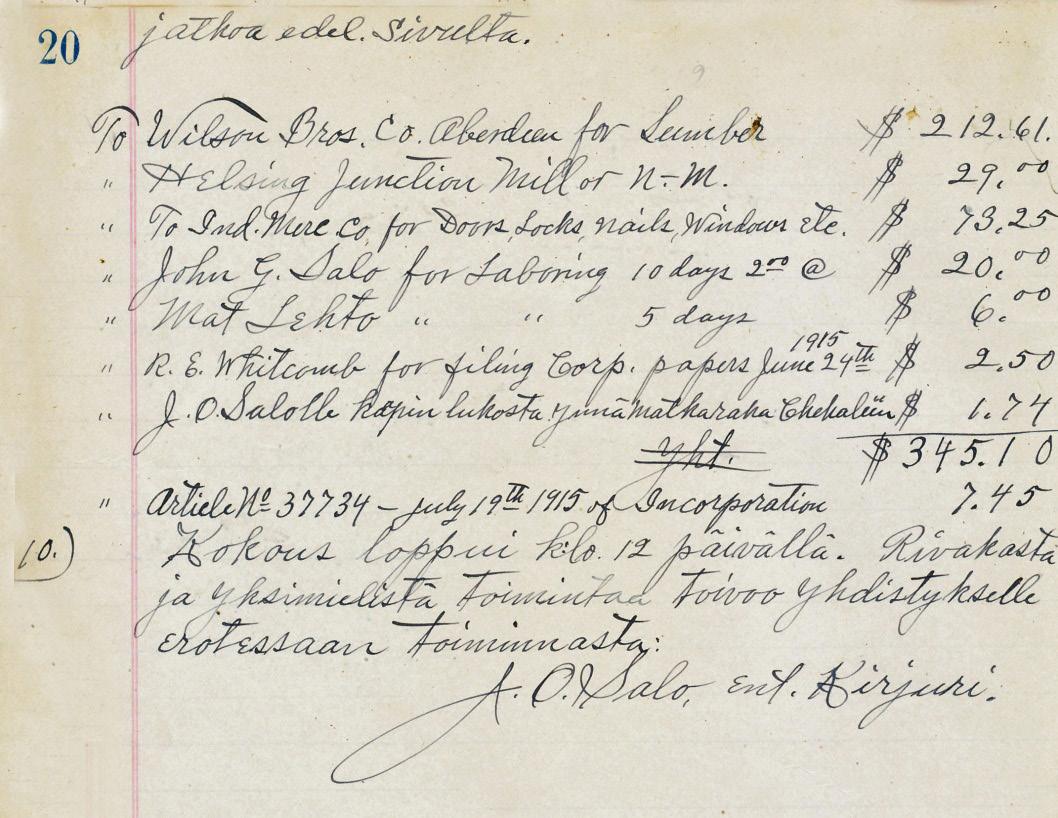 20 jatkoa edel. Sivulta.
To Wilson Bros. Co. Aberdeen for Lumber $ 212.61.
" Helsing Junction Mill or N-M. $ 29.00
" To Ind. Merc. Co, for Doors, Locks, nails, Windows etc. $ 73.25
" John G. Salo for Laboring 10 days 2.00 @ $ 20.00
" Mat Lehto " " 5 days $ 6.00
" R. E. Whitcomb for filing Corp. papers June 24th 1915 $ 2.50
" J. O. Salolle kapin lukosta ynnä matkaraha Chehaliin $ 1.74
Yht. $ 345.10
" Article No 37734 – July 19th 1915 of Incorporation 7.45
10.) Kokous loppui klo. 12 päivällä. Rivakasta
ja yksimielistä toimintaa toivoo Yhdistykselle
erotessaan toiminnasta:
J. O. Salo, ent. Kirjuri.